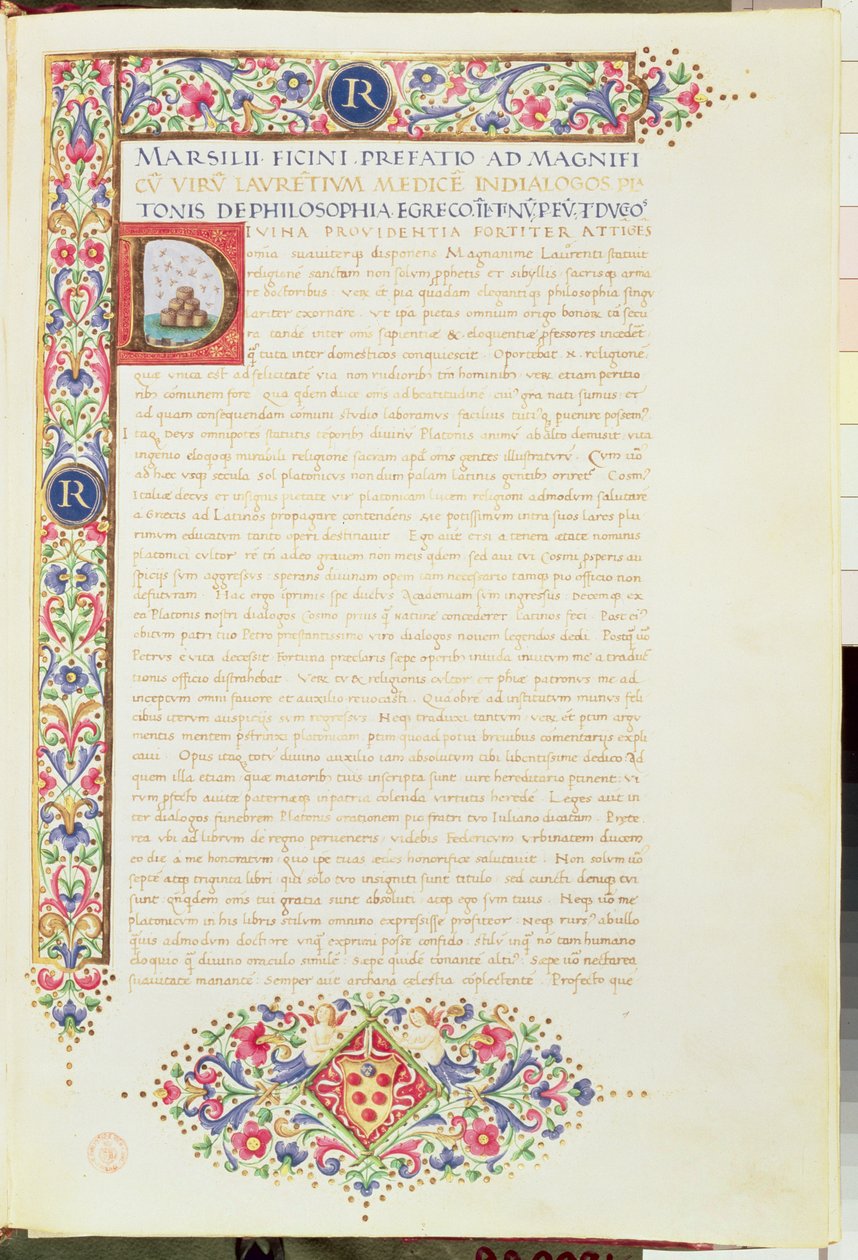 R
MARSILII · FICINI · PREFATIO · AD MAGNIFI
CŪ VIRŪ LAVRĒTIVM MEDICĒ INDIALOGOS PLA
TONIS DE PHILOSOPHIA EGRECO
DIVINA PROVIDENTIA FORTITER ATTIGĒS
omia suauiterq; disponens Magnanime Laurenti statuit
religionē sanctam non solvm pphetis et sibyllis sacrisq; arma
re doctoribus : et pia quadam elegantiq; philosophia singv
lariter exornare · Vt ipa pietas omnium origo
ra tandē inter oms sapientiæ & eloquentiæ pfessores incedēt
tuta inter domesticos conquiescit · Oportebat religionē
quæ vnica est ad felicitatē via non rudiorib; hominib; etiam peritio
rib; comunem fore · Qua qdem duce oms ad beatitudinē nati sumus et
ad quam consequendam comuni stvdio laboramvs facilius puenire possem
Itaq; Devs omnipotēs statutis tēporib; divinū Platonis animū ab alto demisit · vita
ingenio eloqoq; mirabili religione sacram apd oms gentes illustraturū · Cvm
ad hæc vsq; secula sol platonicvs nondum palam latinis gentib; · Cosm
Italiæ decvs et insignis pietate vir platonicam lvcem religioni admodvm salutare
a Græcis ad Latinos propagare contendens · me potissimvm intra svos lares plv
rimvm educatvm tanto operi destinavit · Ego avt etsi a tenera ætate nominis
platonici cvltor rē tn adeo gravem non meis qdem sed avi tvi Cosmi psperis av
spiciis svm aggressvs : sperans divinam opem tam necessario tamq; pio officio non
defutvram · Hac ergo iprimis spe dvctvs Academiam svm ingressvs : Decemq; ex
ea Platonis nostri dialogos Cosmo prius q̄ natvræ concederet latinos feci · Post
obitvm patri tvo Petro præstantissimo viro dialogos novem legendos dedi · Postq̄
Petrvs e vita decessit Fortuna præclaris sæpe operib; invida invitvm me a tradvc
tionis officio distrahebat · tv & religionis cvltor et phiæ patronvs me ad
inceptvm omni favore et auxilio revocasti · Quā obrē ad institutvm munvs feli
cibus itervm avspiciis svm regressvs · Neq; traduxi tantvm et ptim argv
mentis mentem pstrinxi platonicam : ptim quoad potvi brevibus comentariis expli
cavi · Opus itaq; totū divino auxilio iam absolutvm tibi libentissime dedico · Ad
quem illa etiam quæ maiorib; tvis inscripta sunt iure hereditario ptinent · Vi
rvm pfecto avitæ paternæq; in patria colenda virtutis heredē · Leges avt in
ter dialogos funebrem Platonis orationem pio fratri tvo Iuliano dicatam · Præte
rea vbi ad librvm de regno perveneris videbis Federicvm Vrbinatem dvcem
eo die a me honoratvm quo ipe tvas ædes honorifice salutavit · Non solvm
septē atq; triginta libri qvi solo tvo insigniti sunt titulo · sed cuncti deniq; tvi
sunt · qnqdem oms tvi gratia sunt absoluti · atq; ego svm tuus · Neq; me
platonicvm in his libris stilvm omnino expressisse profiteor · Neq; rurs ab vllo
q̄vis admodvm doctiore vnq̄ exprimi posse confido · stilū inq̄ nō tam humano
eloquio q̄ divino oraculo similē : Sæpe quidē tonantē alti · Sæpe nectarea
svavitate manantē : Semper avt archana celestia cōplectentē · Profecto que
R